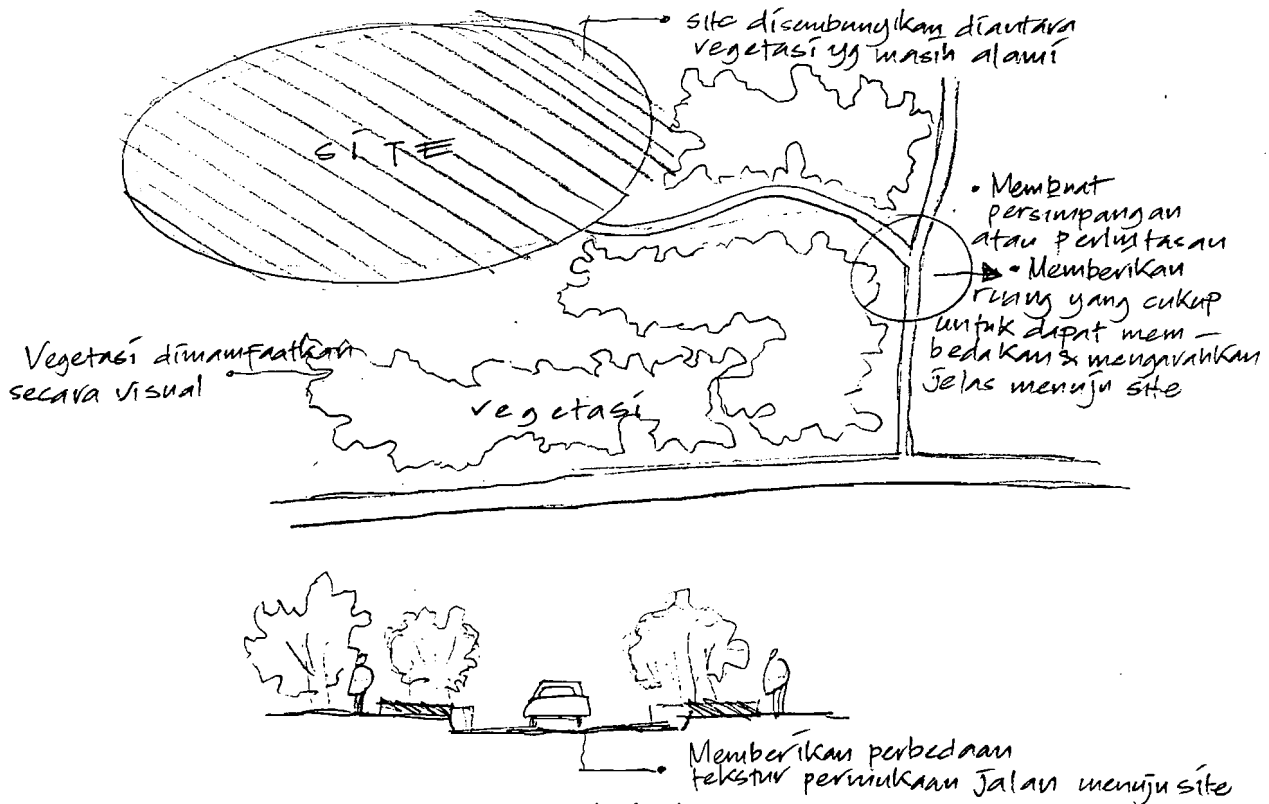 site disembunyikan diantara
vegetasi yg masih alami
SITE
• Membuat
persimpangan
atau perlintasan
• Memberikan
ruang yang cukup
untuk dapat mem–
bedakan & mengarahkan
jelas menuju site
Vegetasi dimamfaatkan
secara visual
vegetasi
Memberikan perbedaan
tekstur permukaan jalan menuju site